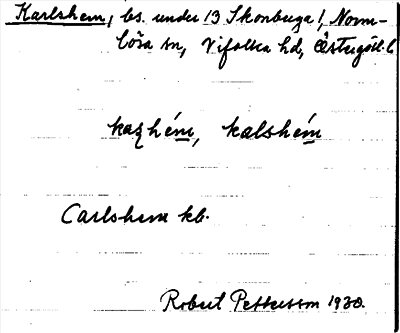 Karlshem, bs. under 13 Skonberga 1, Norrn-
lösa sn, Vifolka hd, Östergötl. l
kaʂhém, kalshém
Carlshem kb.
Robert Pettersson 1930.